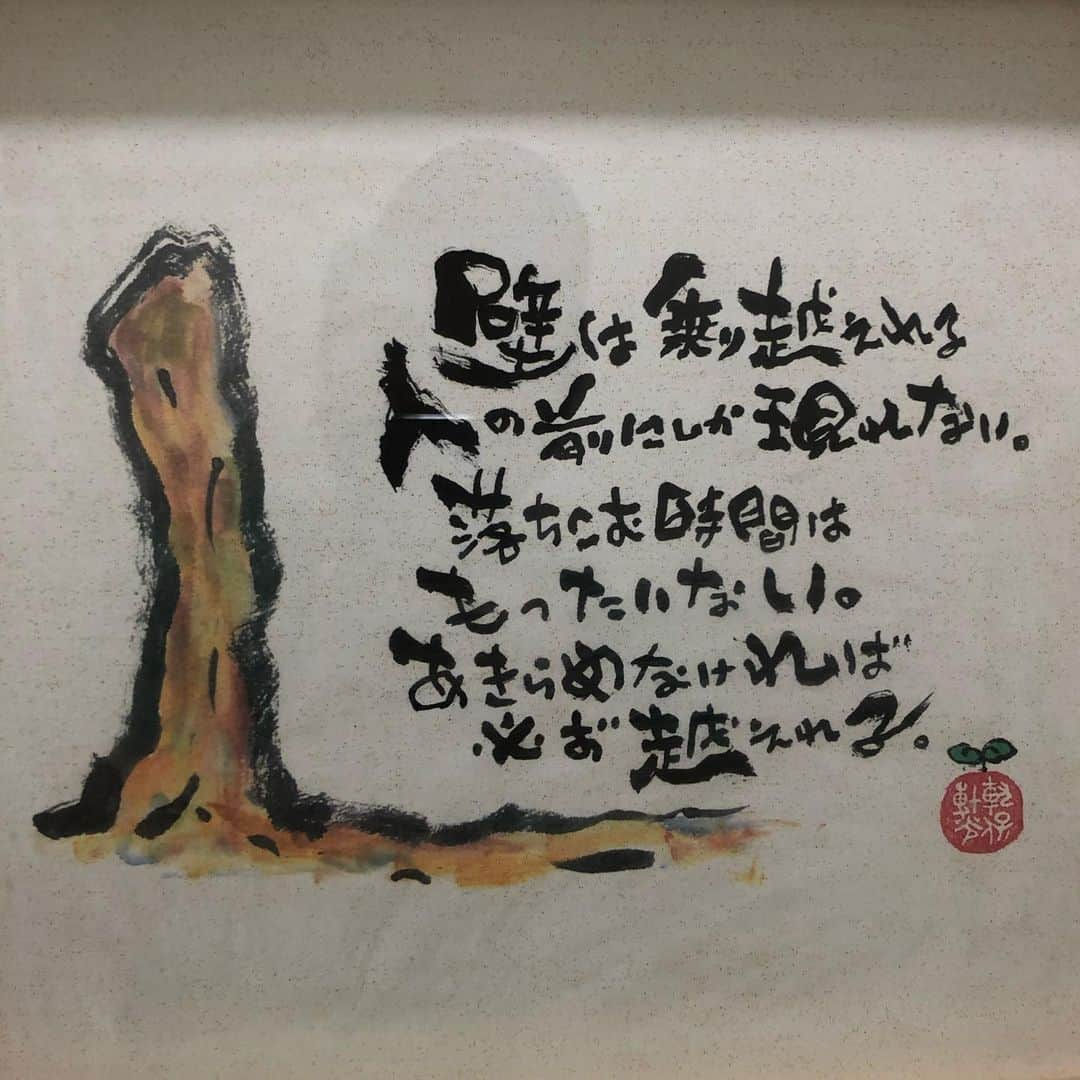 壁は乗り越えれる
人の前にしか現れない。
落ちこむ時間は
もったいない。
あきらめなければ
必ず越えれる。